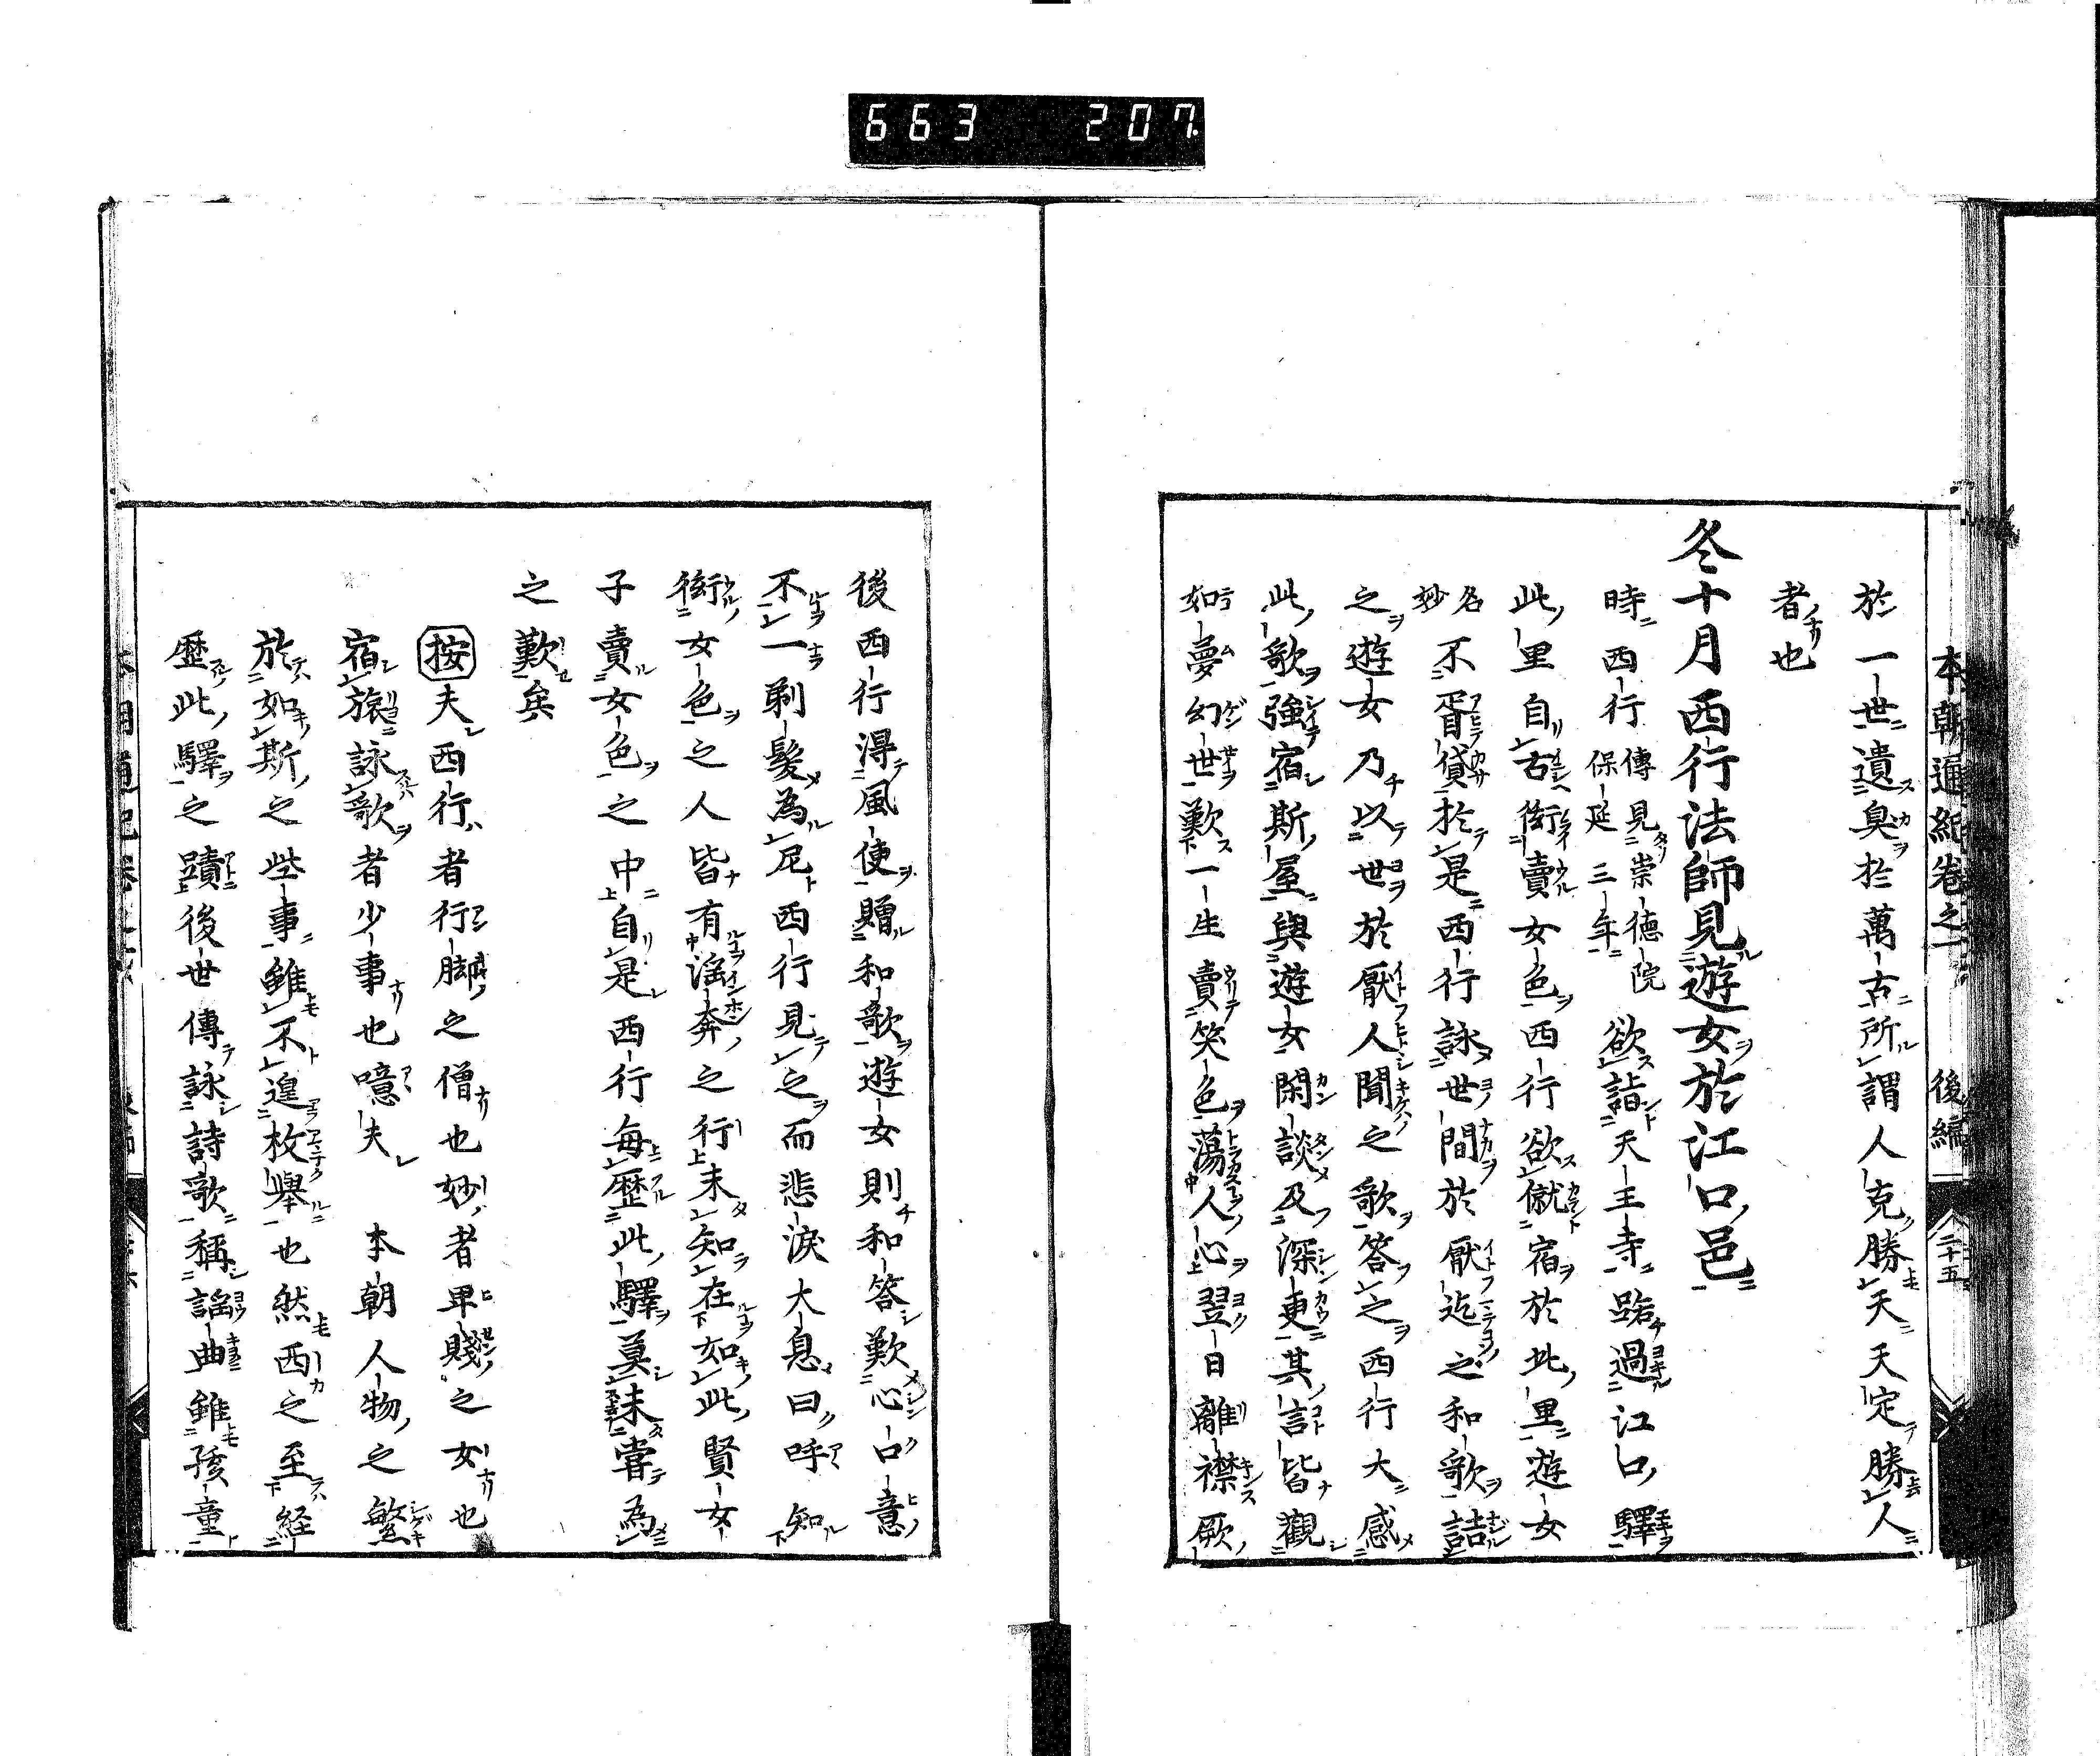 663 207
本朝通紀卷之 後編 二十五
於一世遺臭於萬古所謂人克勝天天定勝人
者也
冬十月西行法師見遊女於江口邑
時西行傳見崇德院保延三年欲詣天王寺路過江口驛
此里自古衒賣女色西行欲僦宿於此里遊女
名妙不肎貸於是西行詠世間於厭迄之和歌詰
之遊女乃以世於厭人聞之歌答之西行大感
此歌強宿斯屋與遊女閑談及深更其言皆觀
如夢幻世歎一生賣笑色蕩人心翌日離襟厥
後西行得風使贈和歌遊女則和答歎心口意
不一剃髮為尼西行見之而悲淚大息曰呼知
衒女色之人皆有滛奔之行未知在如此賢女
子賣女色之中自是西行每歷此驛莫未甞為
之歎矣
按夫西行者行脚之僧也妙者卑賤之女也
宿旅詠歌者少事也噫夫 本朝人物之繁
於如斯之些事雖不遑枚舉也然西之至経
歷此驛之蹟後世傳詠詩歌稱謡曲雖孩童